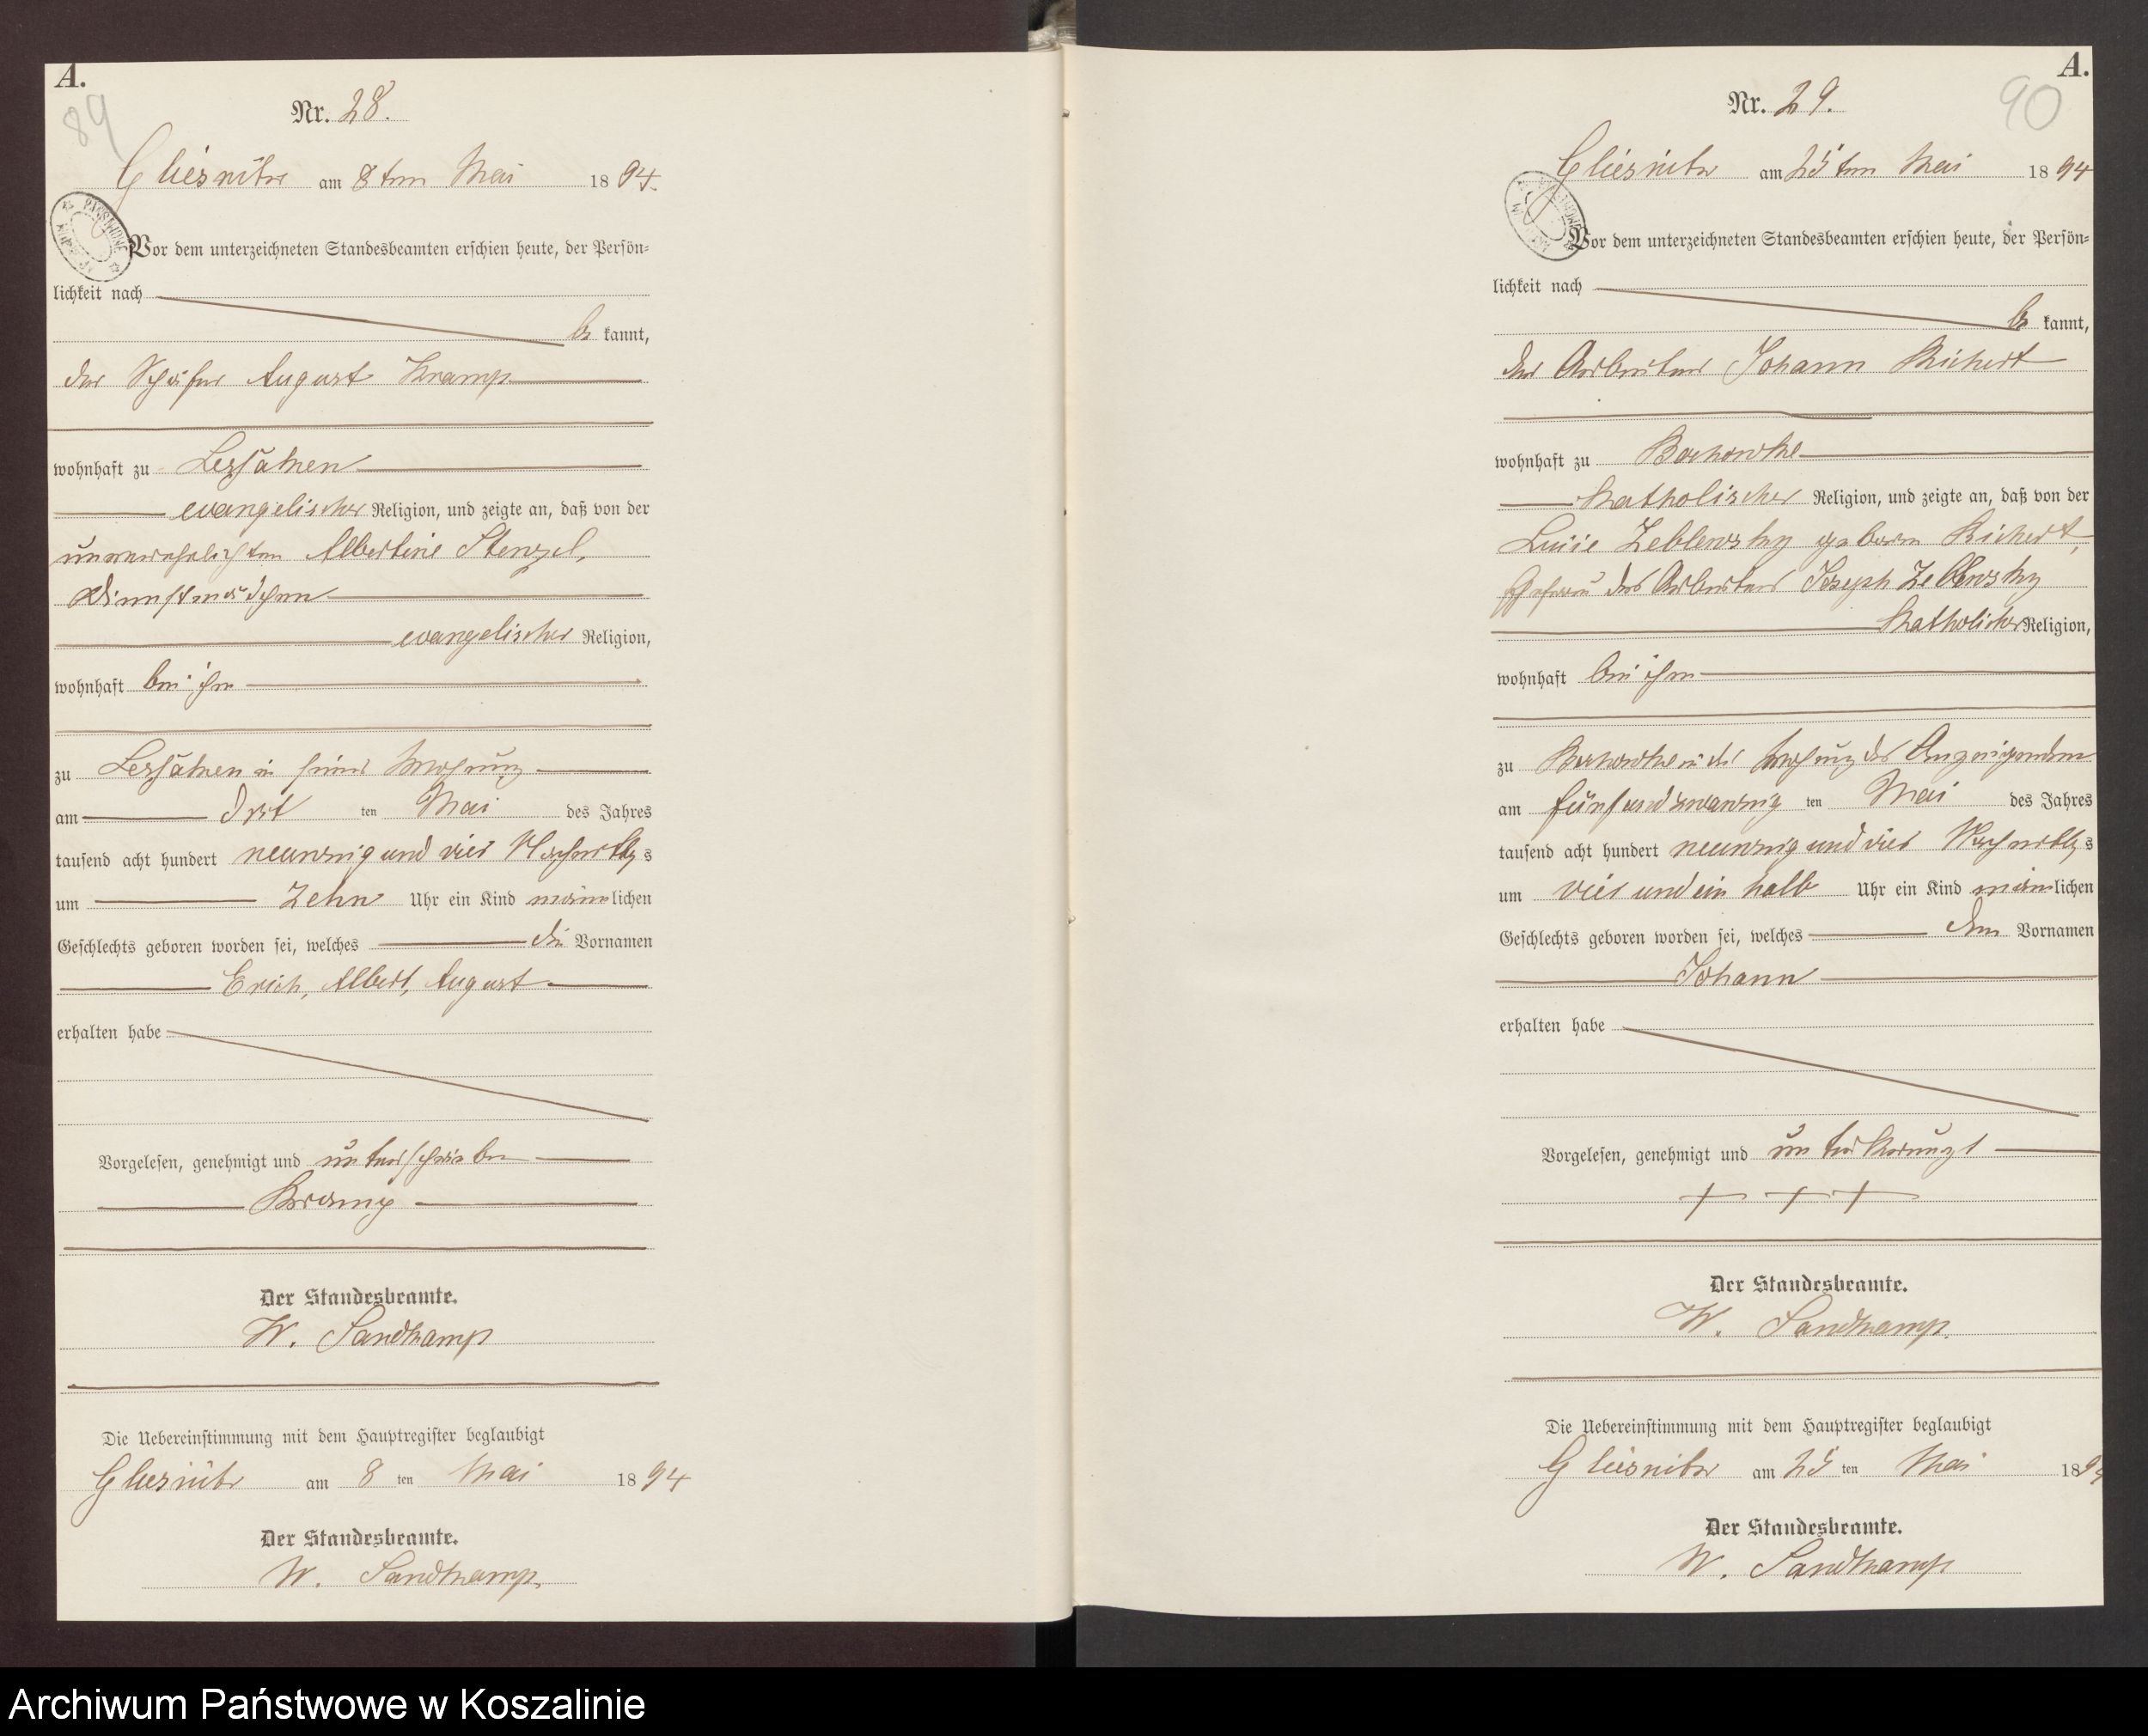 A.
89
Nr. 28.
Gliesnitz am 8ten Mai 1894.
Vor dem unterzeichneten Standesbeamten erschien heute, der Persön-
lichkeit nach
be kannt,
der Schäfer August Kramp
wohnhaft zu
evangelischer Religion, und zeigte an, daß von der
unverehelichten Albertine Stenzel,
Dienstmädchen
evangelischer Religion,
wohnhaft bei ihm
zu in seiner Wohnung
am ten Mai des Jahres
tausend acht hundert neunzig und vier Nachmittags
um Zehn Uhr ein Kind männlichen
Geschlechts geboren worden sei, welches die Vornamen
Erich, Albert, August
erhalten habe
Vorgelesen, genehmigt und unterschrieben
Kramp
Der Standesbeamte.
W. Sandkamp
Die Uebereinstimmung mit dem Hauptregister beglaubigt
Gliesnitz am 8 ten Mai 1894
Der Standesbeamte.
W. Sandkamp.
A.
90
Nr. 29.
Gliesnitz am 25ten Mai 1894
Vor dem unterzeichneten Standesbeamten erschien heute, der Persön-
lichkeit nach
be kannt,
der Arbeiter Johann Richert
wohnhaft zu
Katholischer Religion, und zeigte an, daß von der
geboren Richert,
Ehefrau des Arbeiters Joseph
Katholischer Religion,
wohnhaft bei ihm
zu in der Wohnung des Anzeigenden
am fünf und zwanzig ten Mai des Jahres
tausend acht hundert neunzig und vier Nachmittags
um vier und ein halb Uhr ein Kind männlichen
Geschlechts geboren worden sei, welches den Vornamen
Johann
erhalten habe
Vorgelesen, genehmigt und unterkreuzt
+ + +
Der Standesbeamte.
W. Sandkamp.
Die Uebereinstimmung mit dem Hauptregister beglaubigt
Gliesnitz am 25 ten Mai 1894
Der Standesbeamte.
W. Sandkamp
Archiwum Państwowe w Koszalinie